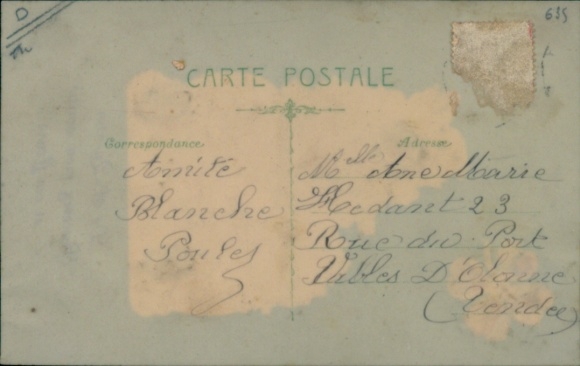 D
635
CARTE POSTALE
Correspondance
Adresse
Amitié
Blanche
Poules
Mlle Ane Marie
Hedant 23
Rue du Port
Sables D'Olonne
(Vendée)